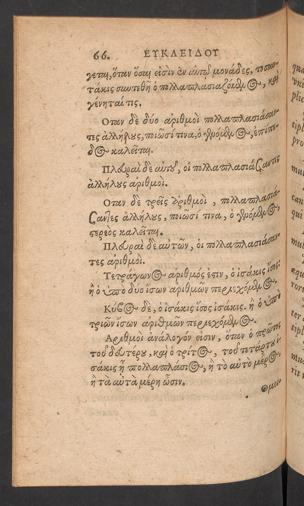 66. ΕΥΚΛΕΙΔΟΥ
γεται, ὅταν ὅσαι εἰσὶν ἐν αὐτῷ μονάδες, τοσαυ-
τάκις συντεθῇ ὁ πολλαπλασιαζόμενος, καὶ
γένηταί τις.
Ὅταν δὲ δύο ἀριθμοὶ πολλαπλασιάσαν-
τες ἀλλήλους, ποιῶσί τινα, ὁ γενόμενος, ἐπίπε-
δος καλεῖται.
Πλευραὶ δὲ αὐτοῦ, οἱ πολλαπλασιάζαντες
ἀλλήλους ἀριθμοί.
Ὅταν δὲ τρεῖς ἀριθμοὶ, πολλαπλασιά-
ζαντες ἀλλήλους, ποιῶσί τινα, ὁ γενόμενος,
στερεὸς καλεῖται.
Πλευραὶ δὲ αὐτῶν, οἱ πολλαπλασιάσαν-
τες ἀριθμοί.
Τετράγωνος ἀριθμός ἐστιν, ὁ ἰσάκις ἴσος:
ἢ ὁ ὑπὸ δύο ἴσων ἀριθμῶν περιεχόμενος.
Κύβος δὲ, ὁ ἰσάκις ἴσος ἰσάκις. ἢ ὁ ὑπὸ
τριῶν ἴσων ἀριθμῶν περιεχόμενος.
Ἀριθμοὶ ἀνάλογόν εἰσιν, ὅταν ὁ πρῶτος
τοῦ δευτέρου, καὶ ὁ τρίτος, τοῦ τετάρτου ἰ-
σάκις ᾖ πολλαπλάσιος, ἢ τὸ αὐτὸ μέρος,
ἢ τὰ αὐτὰ μέρη ὦσιν.